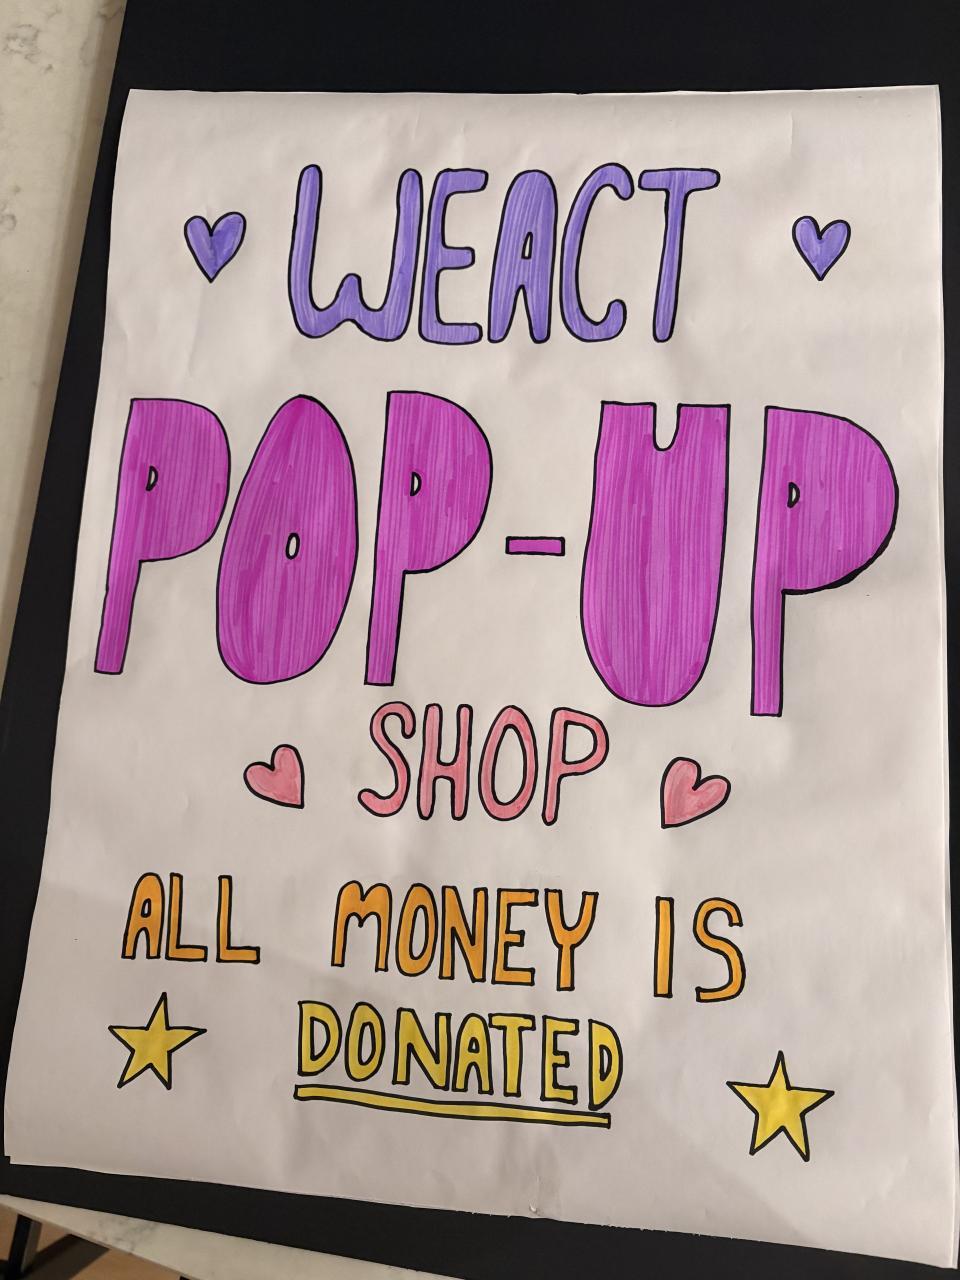 WEACT
POP-UP
SHOP
ALL MONEY IS
DONATED